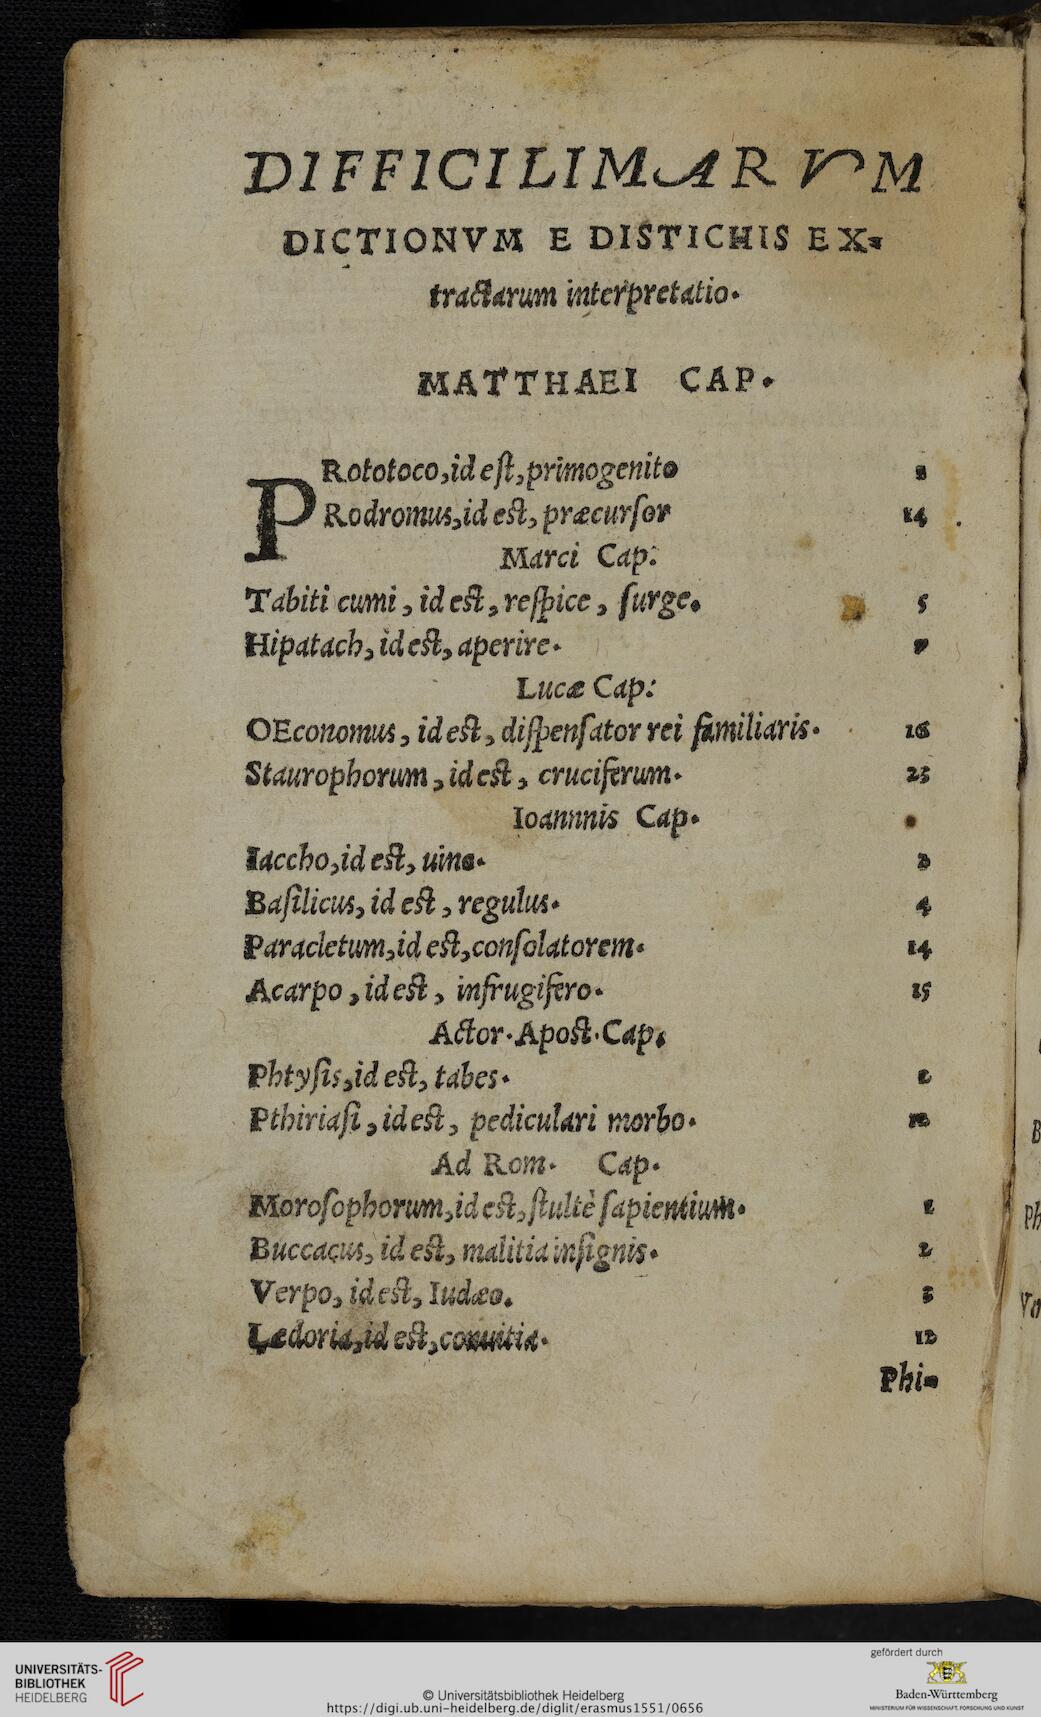 DIFFICILIMARVM
DICTIONVM E DISTICHIS EX-
tractarum interpretatio.
MATTHAEI CAP.
PRototoco, id eſt, primogenito
PRodromus, id eſt, præcurſor 14
Marci Cap:
Tabiti cumi, id eſt, reſpice, ſurge. 5
Hipatach, id eſt, aperire.
Lucæ Cap:
OEconomus, id eſt, diſpenſator rei familiaris. 16
Staurophorum, id eſt, cruciferum. 23
Ioannnis Cap.
Iaccho, id eſt, uino. 2
Baſilicus, id eſt, regulus. 4
Paracletum, id eſt, conſolatorem. 14
Acarpo, id eſt, infrugifero. 15
Actor. Apoſt. Cap.
Phtyſis, id eſt, tabes.
Pthiriaſi, id eſt, pediculari morbo. 12
Ad Rom. Cap.
Moroſophorum, id eſt, ſtultè ſapientium. 1
Buccacus, id eſt, malitia inſignis. 2
Verpo, id eſt, Iudæo. 3
Lædoria, id eſt, conuitia. 12
Phi-
UNIVERSITÄTS-
BIBLIOTHEK
HEIDELBERG
© Universitätsbibliothek Heidelberg
https://digi.ub.uni-heidelberg.de/diglit/erasmus1551/0656
gefördert durch
Baden-Württemberg
MINISTERIUM FÜR WISSENSCHAFT, FORSCHUNG UND KUNST